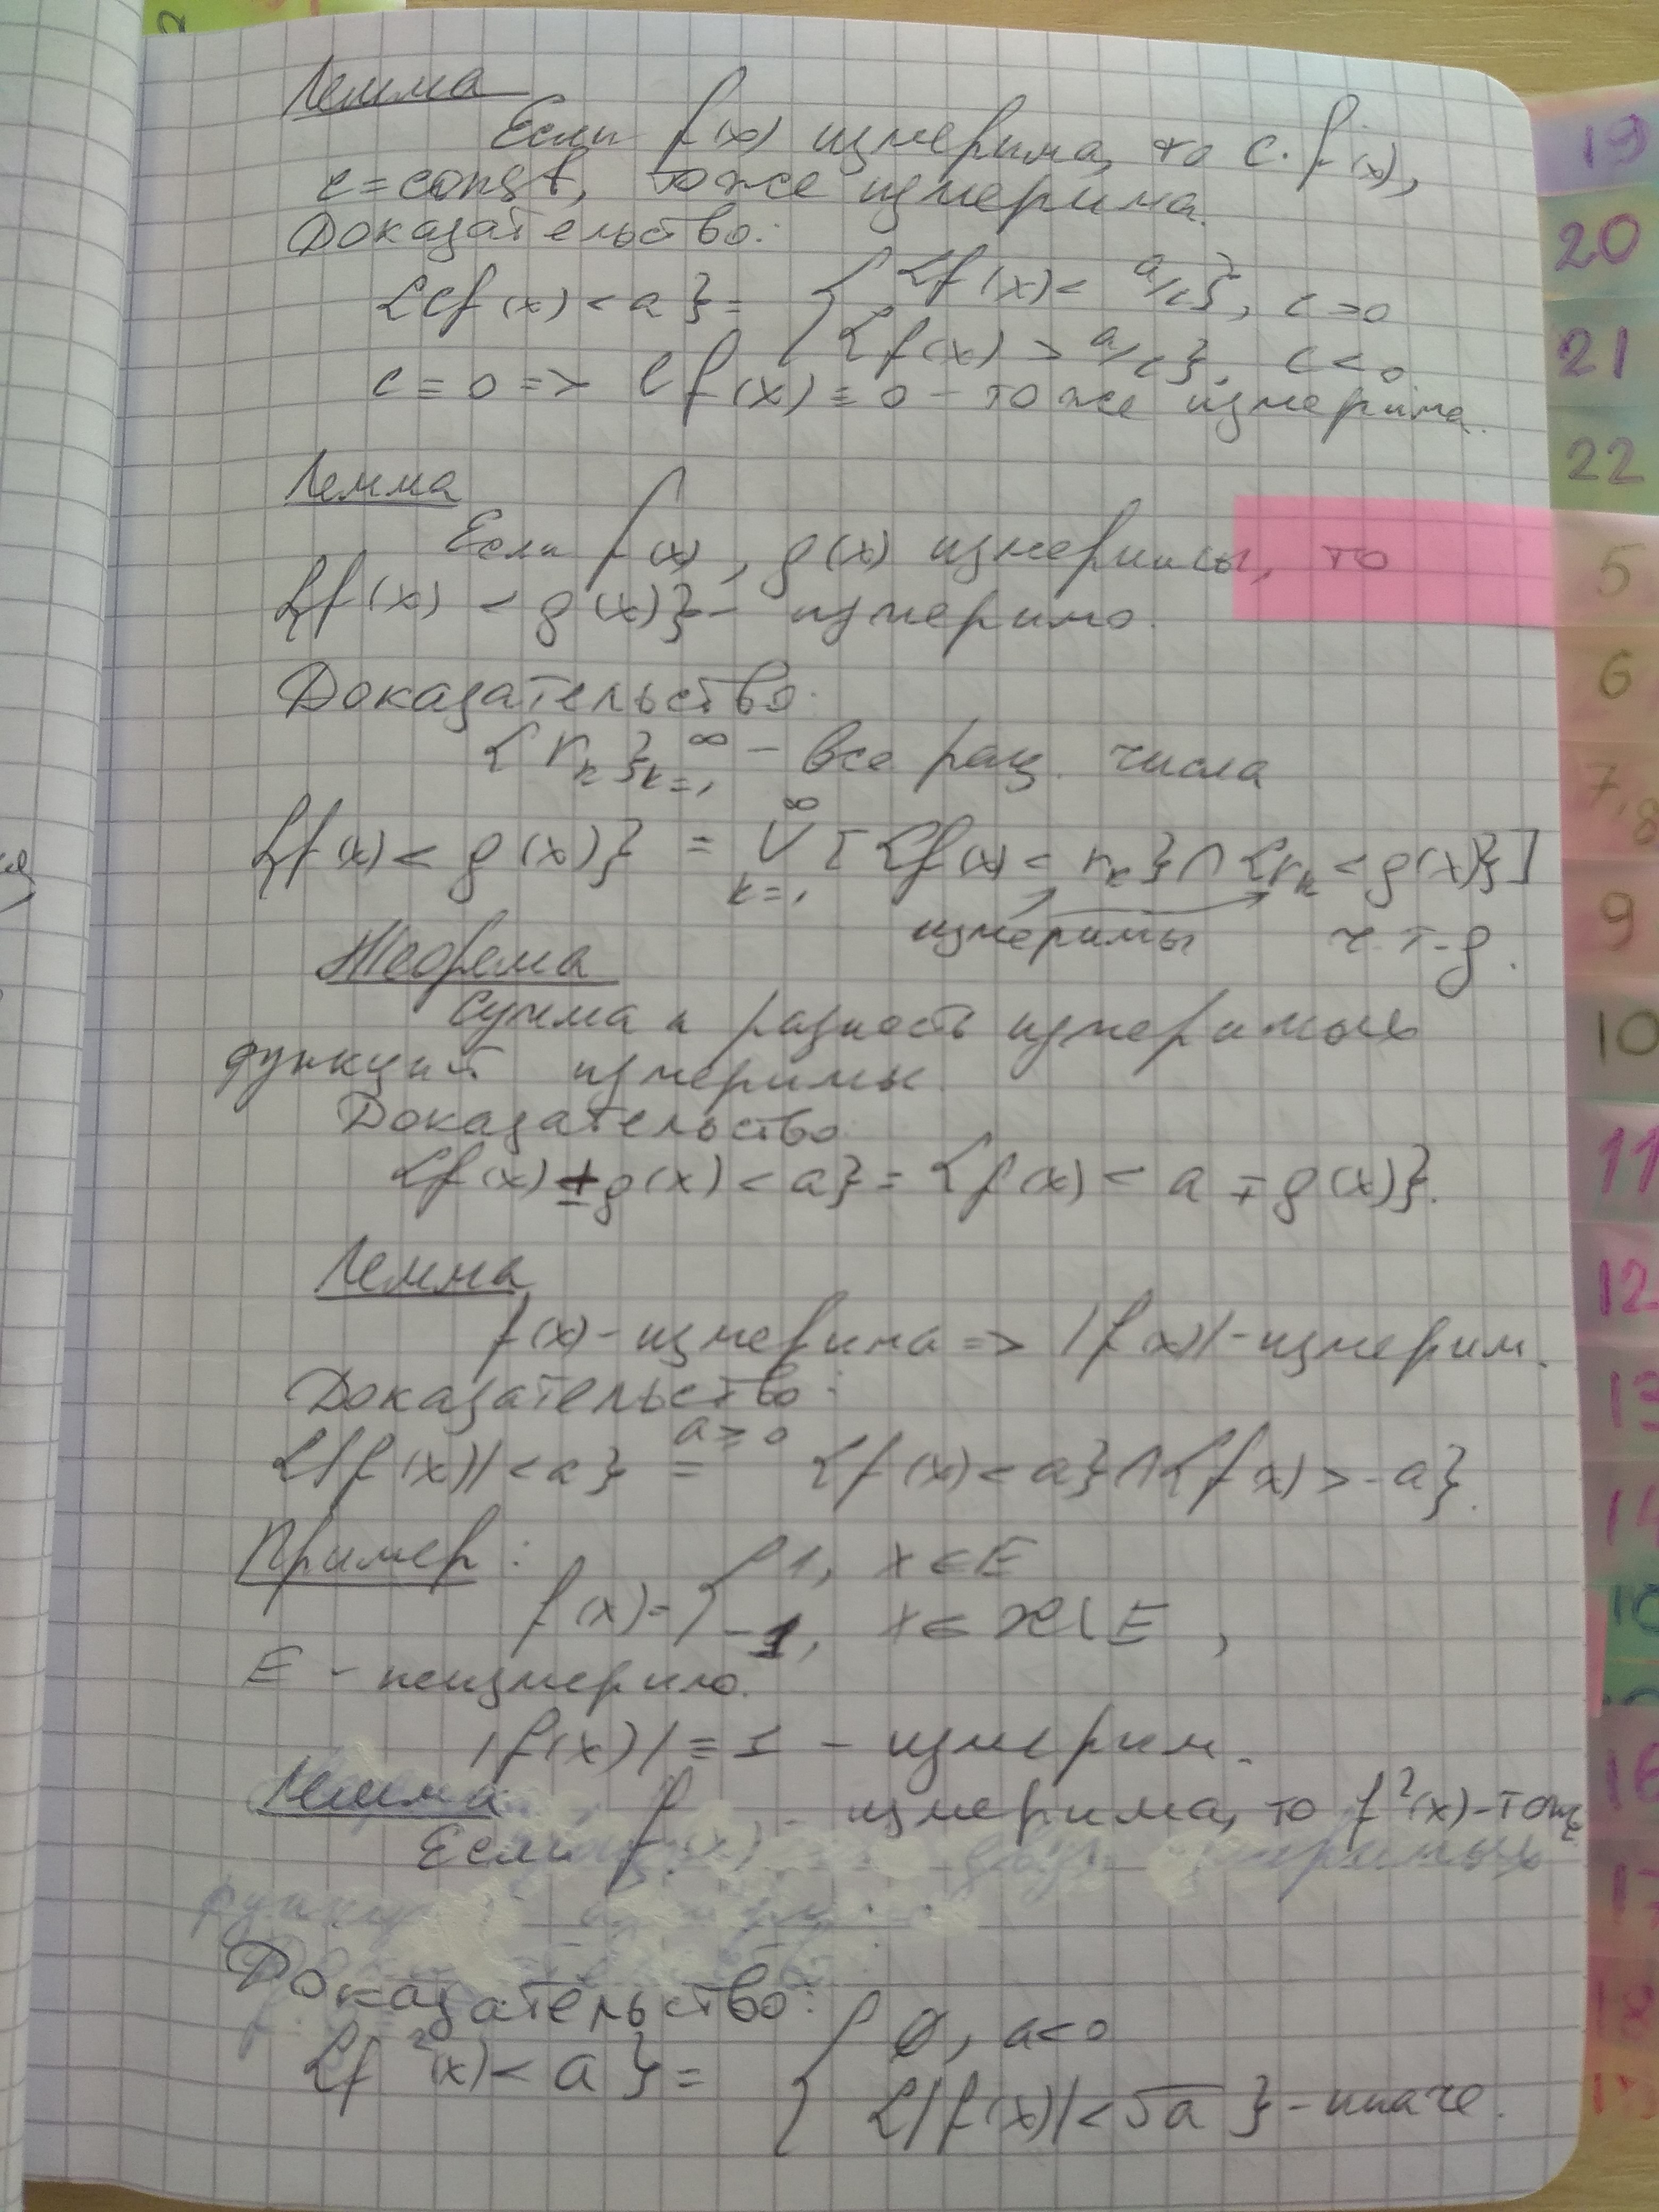 Лемма
Если f(x) измерима, то c·f(x),
c=const, тоже измерима.
Доказательство:
{cf(x)<a}= { {f(x)< a/c}, c>0
{f(x) > a/c}, c<0
c=0 => cf(x)≡0 - тоже измерима.
Лемма
Если f(x), g(x) измеримы, то
{f(x) < g(x)} - измеримо.
Доказательство:
{r_k}_{k=1}^∞ - все рац. числа
{f(x) < g(x)} = ∪_{k=1}^∞ [{f(x)<r_k}∩{r_k<g(x)}]
измеримы ч.т.д.
Теорема
Сумма и разность измеримых
функций измеримы.
Доказательство
{f(x)±g(x)<a}={f(x) < a ∓ g(x)}.
Лемма
f(x)-измерима => |f(x)|-измерим.
Доказательство:
{|f(x)|<a} =^{a≥0} {f(x)<a}∩{f(x)>-a}.
Пример:
f(x)= { 1, x∈E
-1, x∈ X\E,
E - неизмеримо.
|f(x)|≡1 - измерим.
Лемма
Если f(x) - измерима, то f²(x)-тоже
Доказательство:
{f²(x)<a}= { ∅, a<0
{|f(x)|<√a} - иначе.
19
20
21
22
5
6
7,8
9
10
11
12
13
14
16
17
18